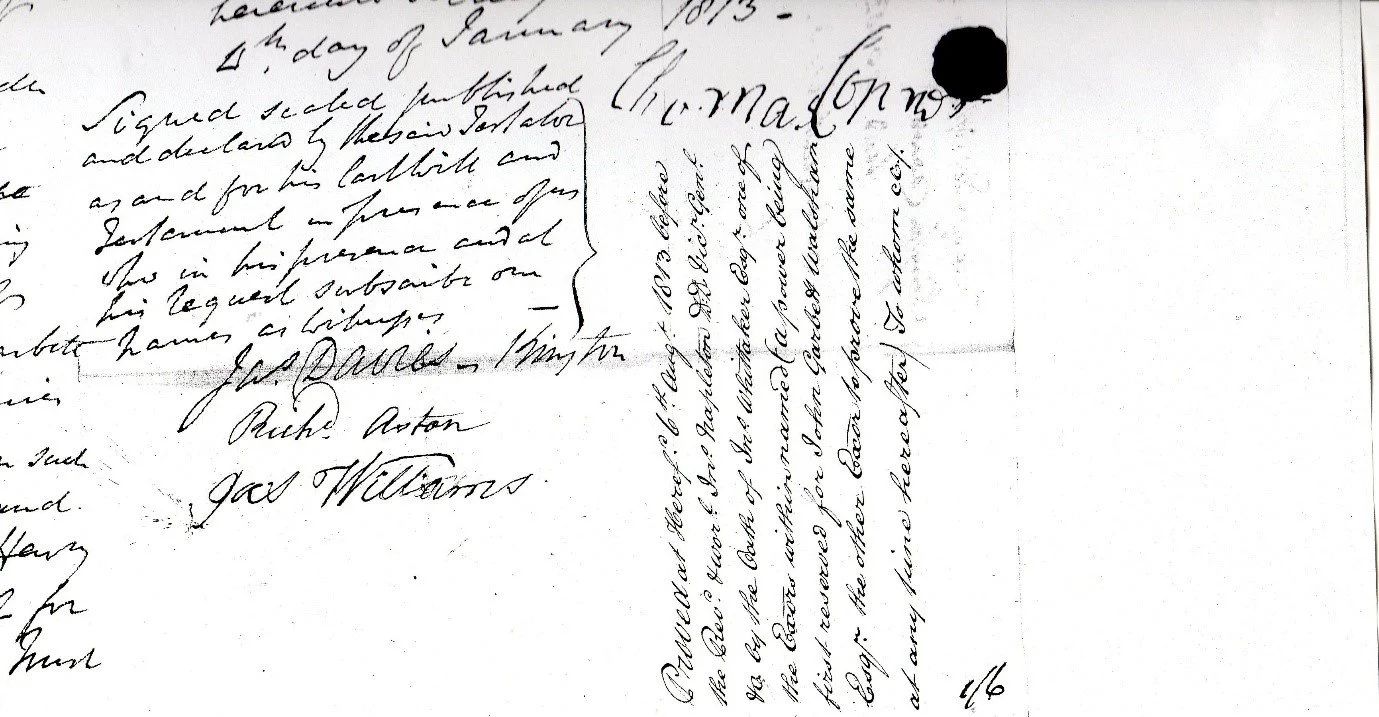 4th. day of January 1813 -
Signed sealed published
and declared by the said Testator
as and for his last Will and
Testament in presence of us
who in his presence and at
his request subscribe our
names as Witnesses
Thomas
Jas. Davies - Kington
Richd. Aston
Jas Williams
such
and
Henry
for
Trust
Proved at Heref. 6th. Augt. 1813 before
the Revd. & worl. Jno. Napleton DD. Vicr. Genl.
&c. by the Oath of Jno. Whittaker Esqr. one of
the Exors within named (a power being
first reserved for John Garbett Walsham
Esqr. the other Exor to prove the same
at any time hereafter) To whom
1/6